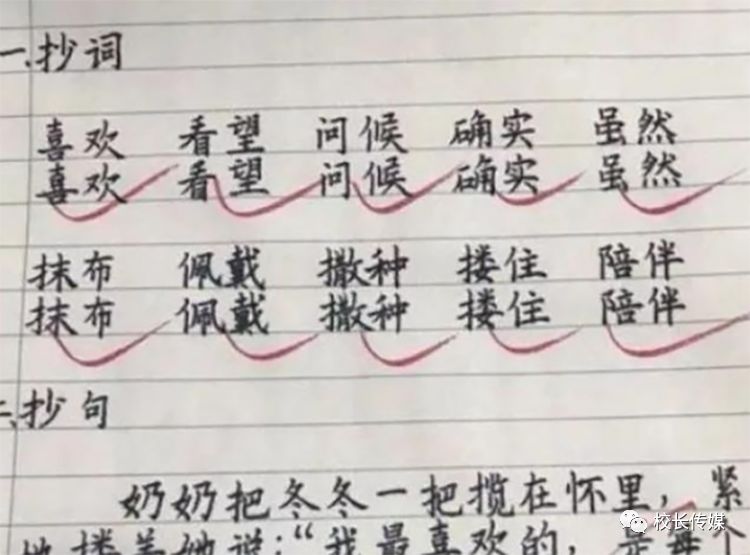 一、抄词
喜欢 看望 问候 确实 虽然
喜欢 看望 问候 确实 虽然
抹布 佩戴 撒种 搂住 陪伴
抹布 佩戴 撒种 搂住 陪伴
二、抄句
奶奶把冬冬一把揽在怀里，紧
地搂着她说：“我最喜欢的，是每个
校长传媒